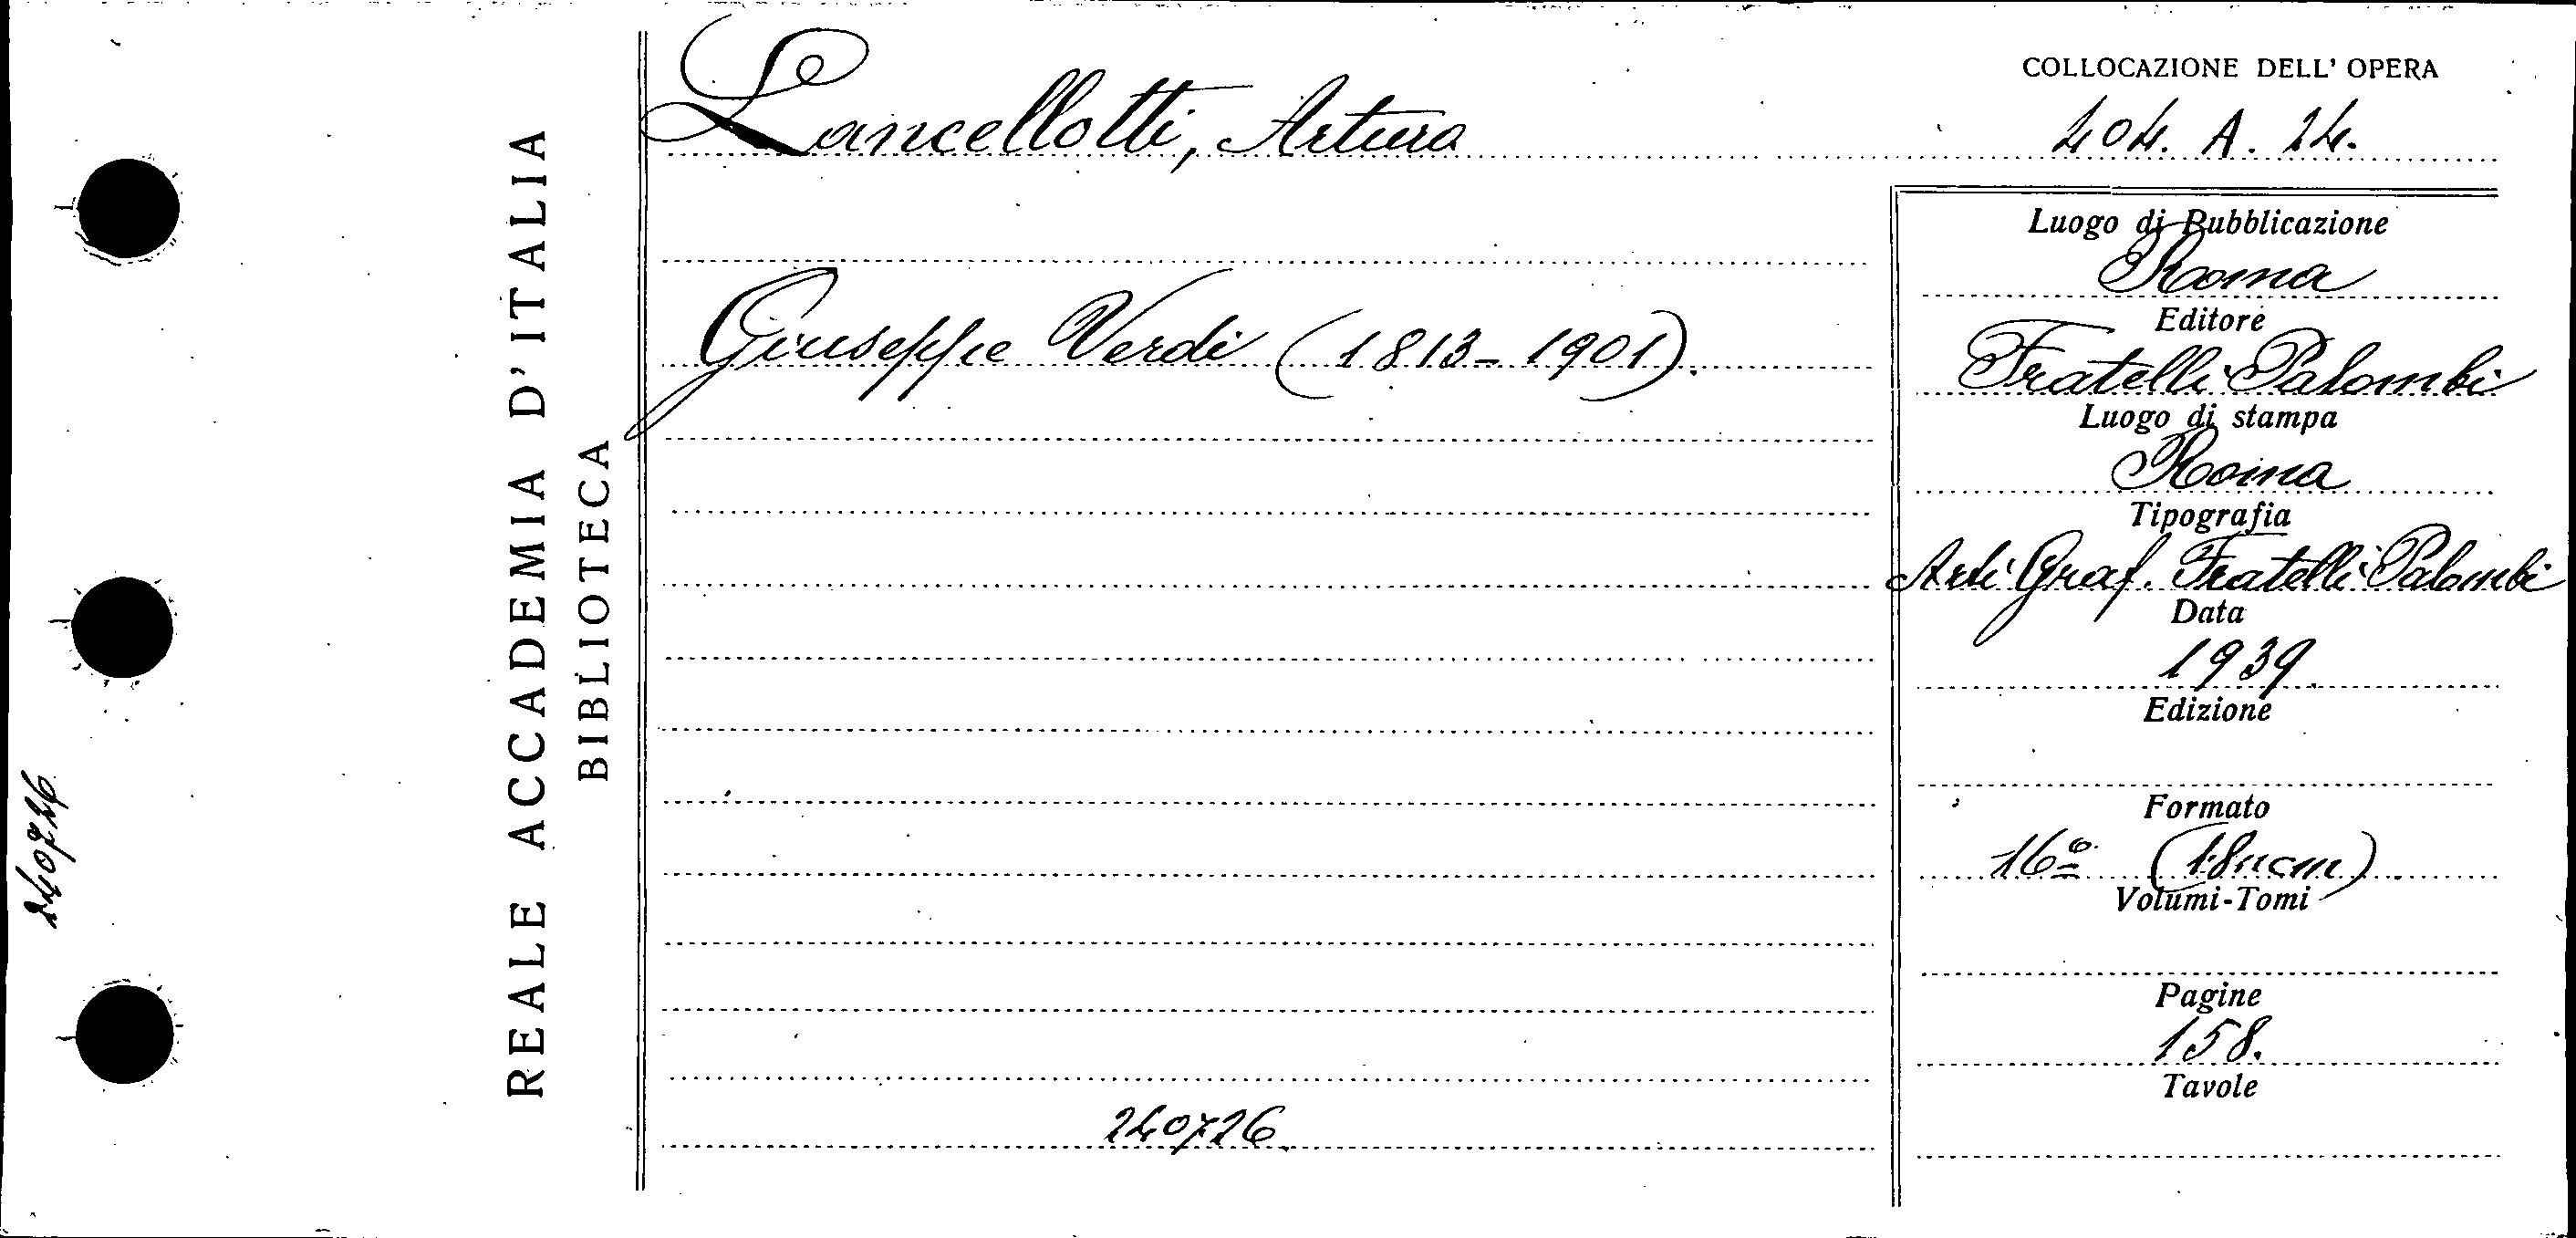 REALE ACCADEMIA D'ITALIA
BIBLIOTECA
Lancellotti, Arturo
Giuseppe Verdi (1813-1901).
240726
240726
COLLOCAZIONE DELL' OPERA
404. A. 24.
Luogo di Pubblicazione
Roma
Editore
Fratelli Palombi
Luogo di stampa
Roma
Tipografia
Arti Graf. Fratelli Palombi
Data
1939
Edizione
Formato
16º (18 cm).
Volumi-Tomi
Pagine
158.
Tavole